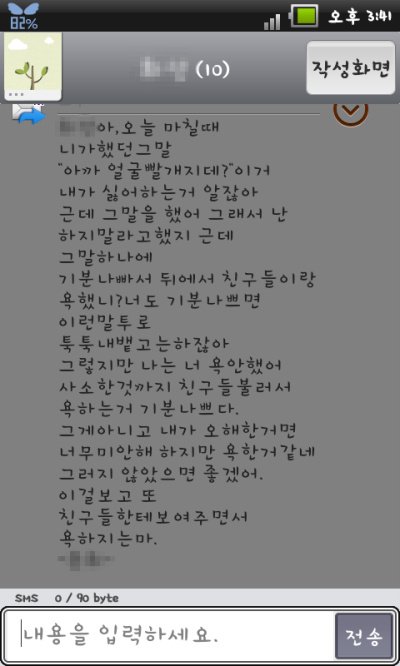 82%
오후 3:41
(10)
작성화면
아,오늘 마칠때
니가했던그말
"아까 얼굴빨개지데?"이거
내가 싫어하는거 알잖아
근데 그말을 했어 그래서 난
하지말라고했지 근데
그말하나에
기분나빠서 뒤에서 친구들이랑
욕했니?너도 기분나쁘면
이런말투로
툭툭내뱉고는하잖아
그렇지만 나는 너 욕안했어
사소한것까지 친구들불러서
욕하는거 기분나쁘다.
그게아니고 내가 오해한거면
너무미안해 하지만 욕한거같네
그러지 않았으면 좋겠어.
이걸보고 또
친구들한테보여주면서
욕하지는마.
SMS 0 / 90 byte
내용을 입력하세요.
전송